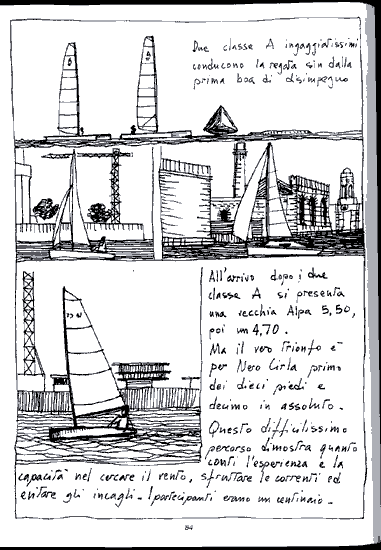 Due classe A ingaggiatissimi
conducono la regata sin dalla
prima boa di disimpegno
All'arrivo dopo i due
classe A si presenta
una vecchia Alpa 5,50,
poi un 4,70.
Ma il vero trionfo è
per Nero Cirla primo
dei dieci piedi e
decimo in assoluto.
Questo difficilissimo
percorso dimostra quanto
conti l'esperienza e la
capacità nel cercare il vento, sfruttare le correnti ed
evitare gli incagli. I partecipanti erano un centinaio.
84